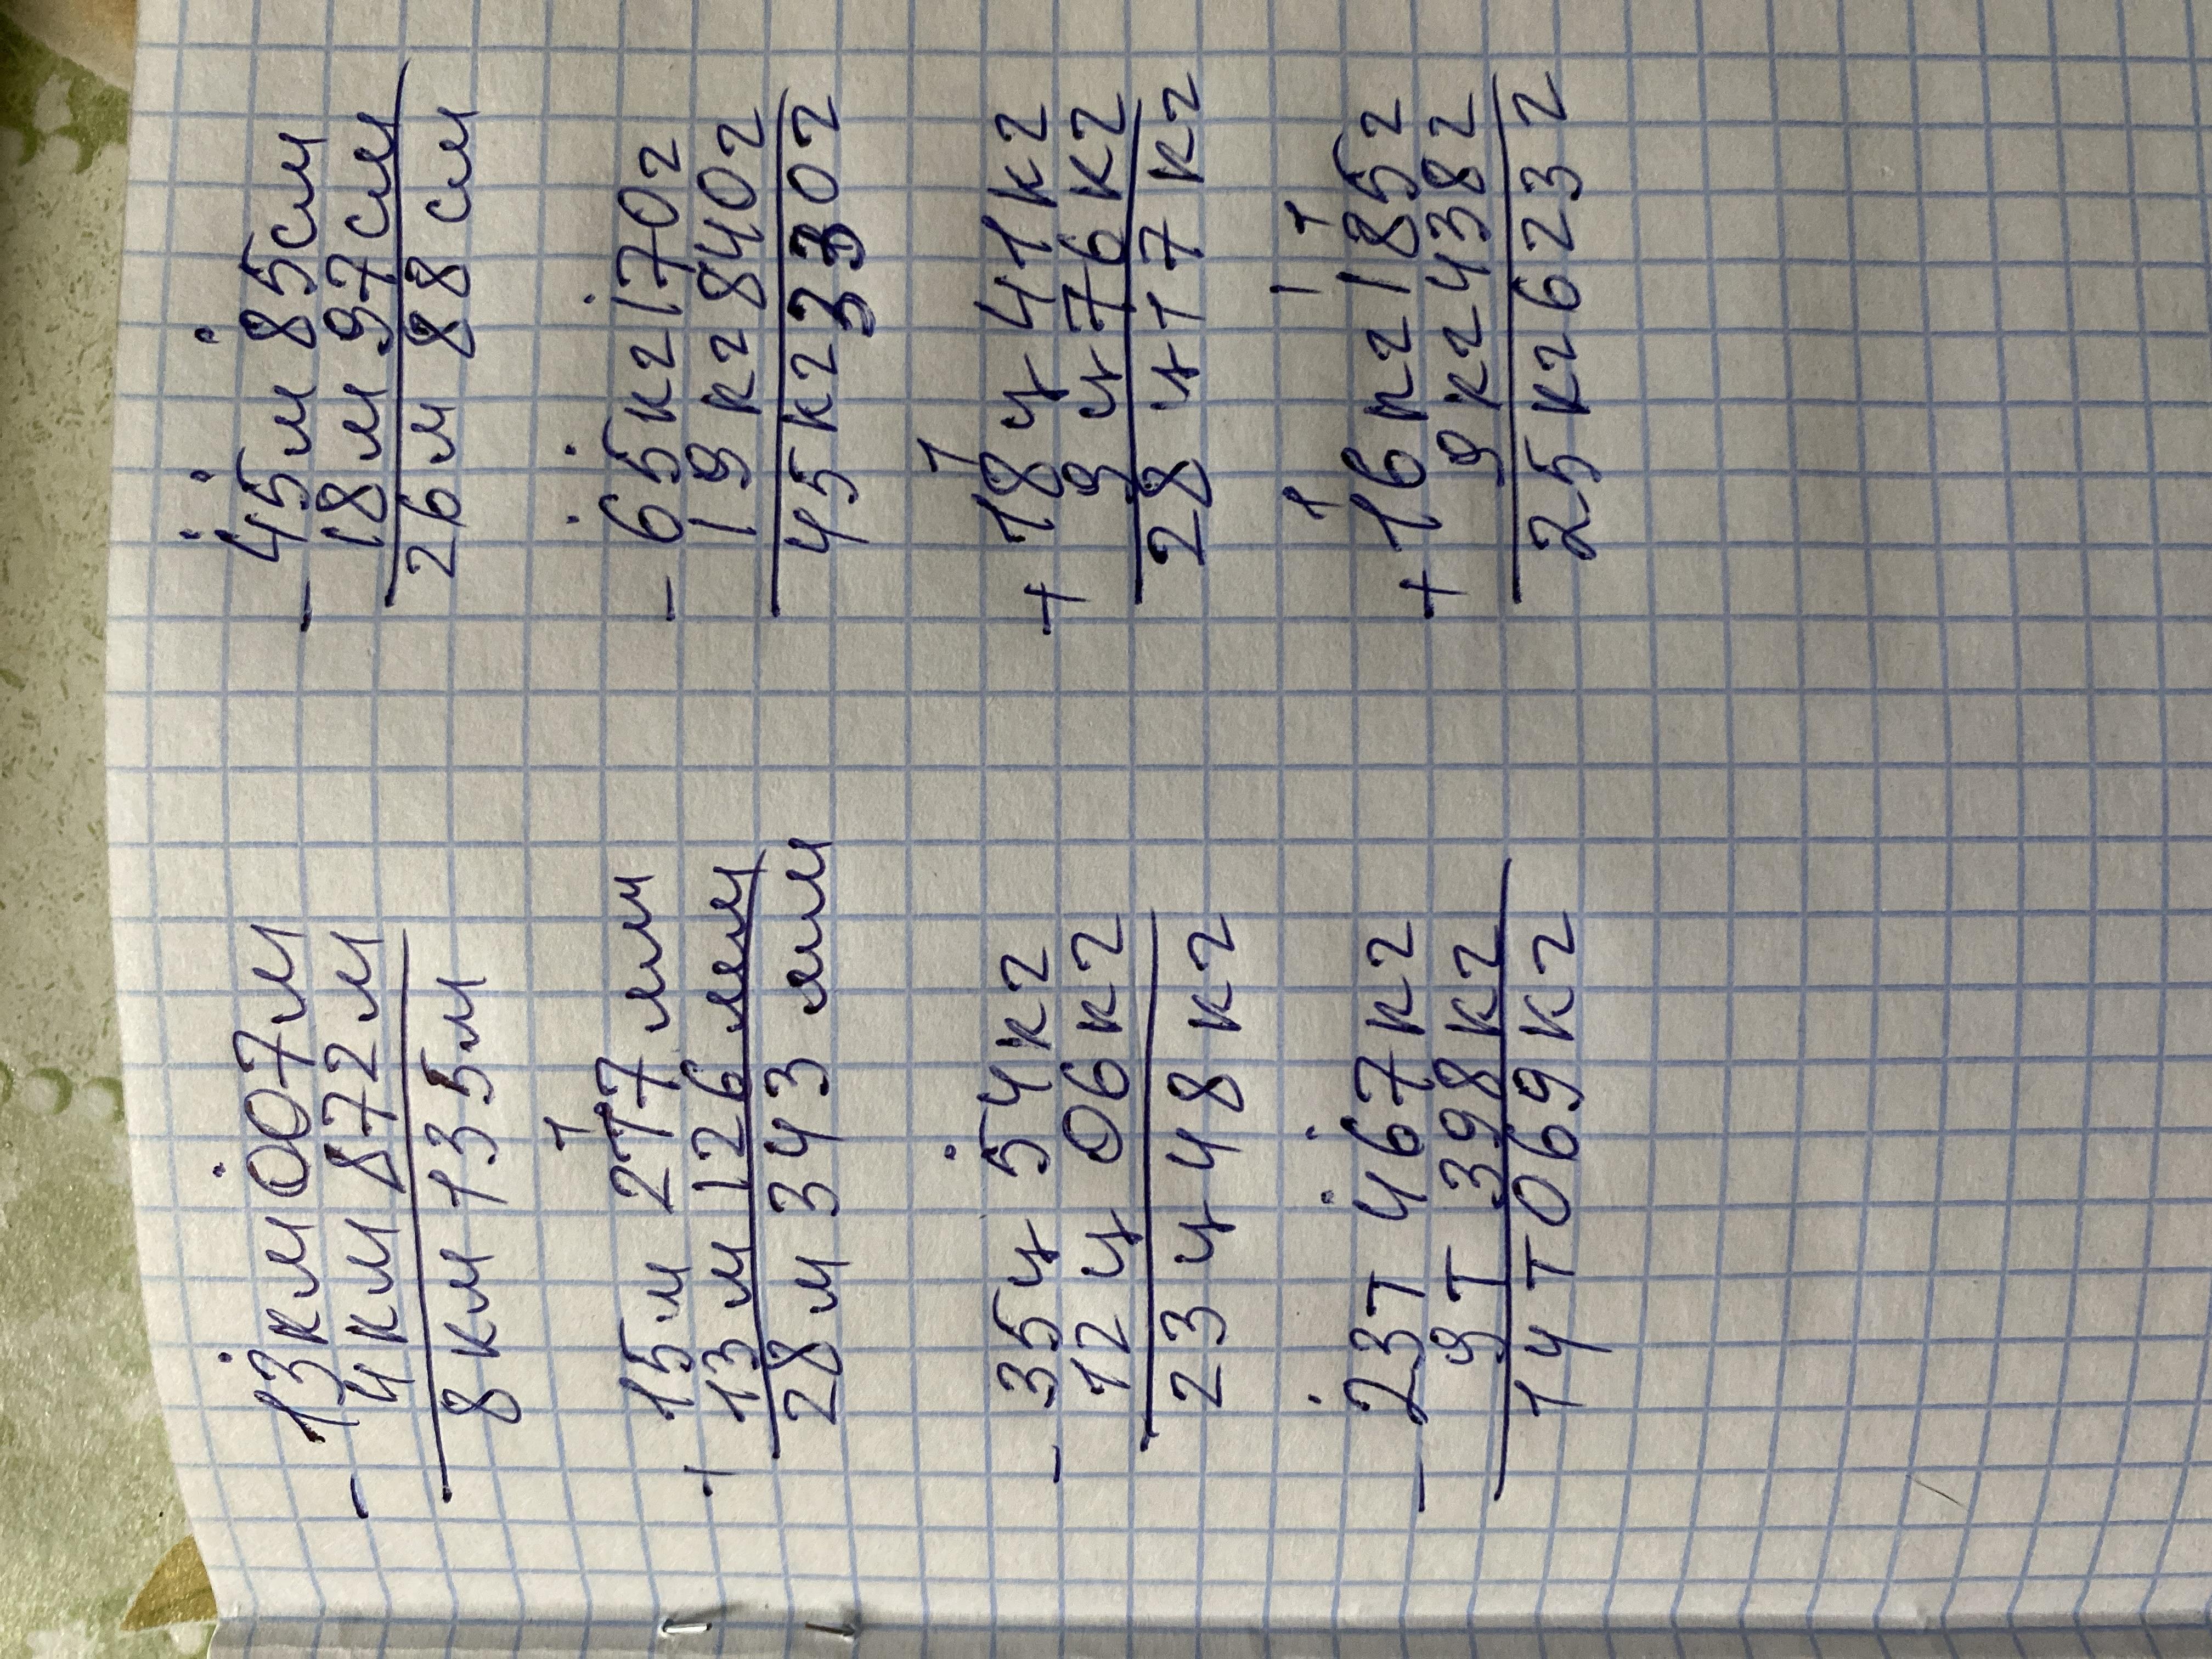 - 13км 007м
4км 872м
8км 135м
+ 15м 277мм
13м 126мм
28м 343мм
- 35ц 54кг
12ц 06кг
23ц 48кг
- 23т 467кг
9т 398кг
14т 069кг
- 45м 85см
18м 97см
26м 88см
- 65кг 170г
19кг 840г
45кг 330г
+ 18ц 41кг
9ц 76кг
28ц 17кг
+ 16кг 185г
9кг 438г
25кг 623г